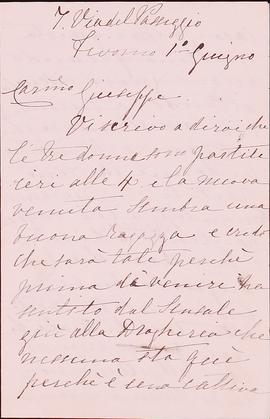 7. Via del Passeggio
Livorno 1° Giugno
Carino Giuseppe
Vi scrivo a dirvi che
le tre donne sono partite
ieri alle 4 e la nuova
venuta sembra una
buona ragazza e credo
che sarà tale perchè
prima di venire ha
sentito dal Sensale
giù alla Drogheria che
nessuna sta quì
perchè è una cattiva